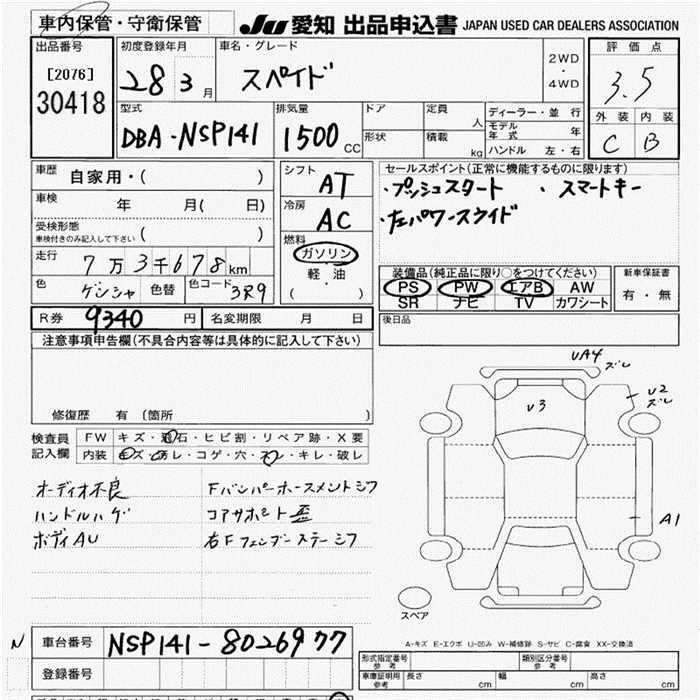 車内保管・守衛保管
JU 愛知 出品申込書 JAPAN USED CAR DEALERS ASSOCIATION
出品番号
[2076]
30418
初度登録年月
28 3 月
車名・グレード
スペイド
2WD
・
4WD
評価点
3.5
外装 内装
C B
型式
DBA-NSP141
排気量
1500 CC
ドア
形状
定員
人
積載
kg
ディーラー・並行
モデル年式 年
ハンドル 左・右
車歴
自家用・( )
車検
年 月( 日)
受検形態
車検付きのみ記入して下さい ( )
走行
7万3千678km
色
ゲンシャ
色替
色コード
3R9
シフト
AT
冷房
AC
燃料
ガソリン
軽・油
( )
セールスポイント(正常に機能するものに限ります)
・プッシュスタート ・スマートキー
・左パワースライド
装備品(純正品に限り○をつけてください)
PS PW エアB AW
SR ナビ TV カワシート
新車保証書
有・無
R券 9340 円
名変期限 月 日
後日品
注意事項申告欄(不具合内容等は具体的に記入して下さい)
修復歴 有 (箇所 )
検査員
記入欄
FW キズ・飛石・ヒビ割・リペア跡・X要
内装 キズ・汚レ・コゲ・穴・スレ・キレ・破レ
オーディオ不良
ハンドルハゲ
ボディAU
Fバンパーホースメントシワ
コアサポート歪
右Fフェンダーステーシワ
UA4
ズレ
U3
U2
ズレ
A1
スペア
A-キズ E-エクボ U-凹み W-補修跡 S-サビ C-腐食 XX-交換済
N
車台番号 NSP141-8026977
登録番号
形式指定番号
参考
類別区分番号
参考
車庫証明用
参考
長さ cm 幅 cm 高さ cm